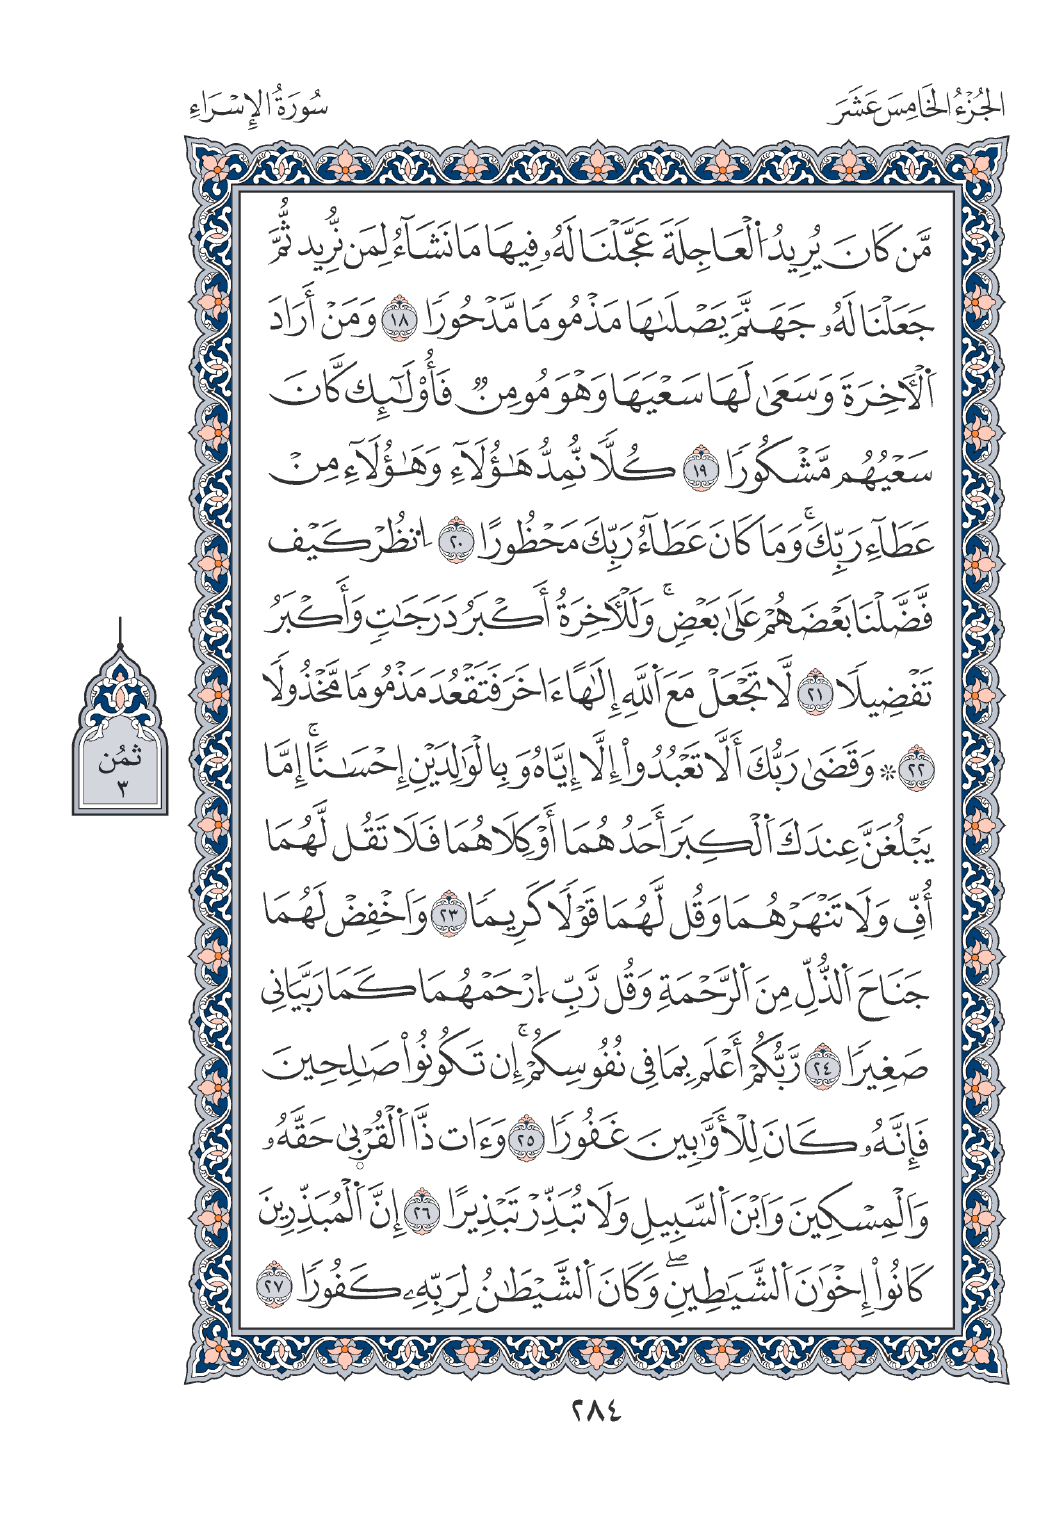 الجُزْءُ الخَامِسَ عَشَرَ
سُورَةُ الإِسْرَاءِ
مَّن كَانَ يُرِيدُ اُ۬لْعَاجِلَةَ عَجَّلْنَا لَهُۥ فِيهَا مَا نَشَآءُ لِمَن نُّرِيد ثُّمَّ
جَعَلْنَا لَهُۥ جَهَنَّمَ يَصْلَىٰهَا مَذْمُومٗا مَّدْحُورٗا ١٨ وَمَنْ أَرَادَ
اَ۬لْأٓخِرَةَ وَسَعَىٰ لَهَا سَعْيَهَا وَهْوَ مُومِنٞ فَأُوْلَـٰٓئِك كَّانَ
سَعْيُهُم مَّشْكُورٗا ١٩ كُلّٗا نُّمِدُّ هَـٰٓؤُلَآءِ وَهَـٰٓؤُلَآءِ مِنْ
عَطَآءِ رَبِّكَۚ وَمَا كَانَ عَطَآءُ رَبِّكَ مَحْظُورًا ٢٠ اِ۟نظُرْ كَيْف
فَّضَّلْنَا بَعْضَهُمْ عَلَىٰ بَعْضٖۚ وَلَلْأٓخِرَةُ أَكْبَرُ دَرَجَـٰتٖ وَأَكْبَرُ
تَفْضِيلٗا ٢١ لَّا تَجْعَلْ مَعَ اَ۬للَّهِ إِلَـٰهًا ءَاخَرَ فَتَقْعُدَ مَذْمُومٗا مَّخْذُولٗا
٢٢ ۞ وَقَضَىٰ رَبُّكَ أَلَّا تَعْبُدُوٓاْ إِلَّآ إِيَّاهُ وَبِالْوَٰلِدَيْنِ إِحْسَـٰنًاۚ إِمَّا
يَبْلُغَنَّ عِندَكَ اَ۬لْكِبَرَ أَحَدُهُمَا أَوْ كِلَاهُمَا فَلَا تَقُل لَّهُمَا
أُفِّ وَلَا تَنْهَرْهُمَا وَقُل لَّهُمَا قَوْلٗا كَرِيمٗا ٢٣ وَاَخْفِضْ لَهُمَا
جَنَاحَ اَ۬لذُّلِّ مِنَ اَ۬لرَّحْمَةِ وَقُل رَّبِّ اِ۪رْحَمْهُمَا كَمَا رَبَّيَانِي
صَغِيرٗا ٢٤ رَّبُّكُمْ أَعْلَم بِمَا فِي نُفُوسِكُمْۚ إِن تَكُونُواْ صَـٰلِحِينَ
فَإِنَّهُۥ كَانَ لِلْأَوَّٰبِينَ غَفُورٗا ٢٥ وَءَات ذَّا اَ۬لْقُرْبىٰ حَقَّهُۥ
وَالْمِسْكِينَ وَابْنَ اَ۬لسَّبِيلِ وَلَا تُبَذِّرْ تَبْذِيرًا ٢٦ إِنَّ اَ۬لْمُبَذِّرِينَ
كَانُوٓاْ إِخْوَٰنَ اَ۬لشَّيَـٰطِينِۖ وَكَانَ اَ۬لشَّيْطَـٰنُ لِرَبِّهِۦ كَفُورٗا ٢٧
ثُمُن
٣
٢٨٤